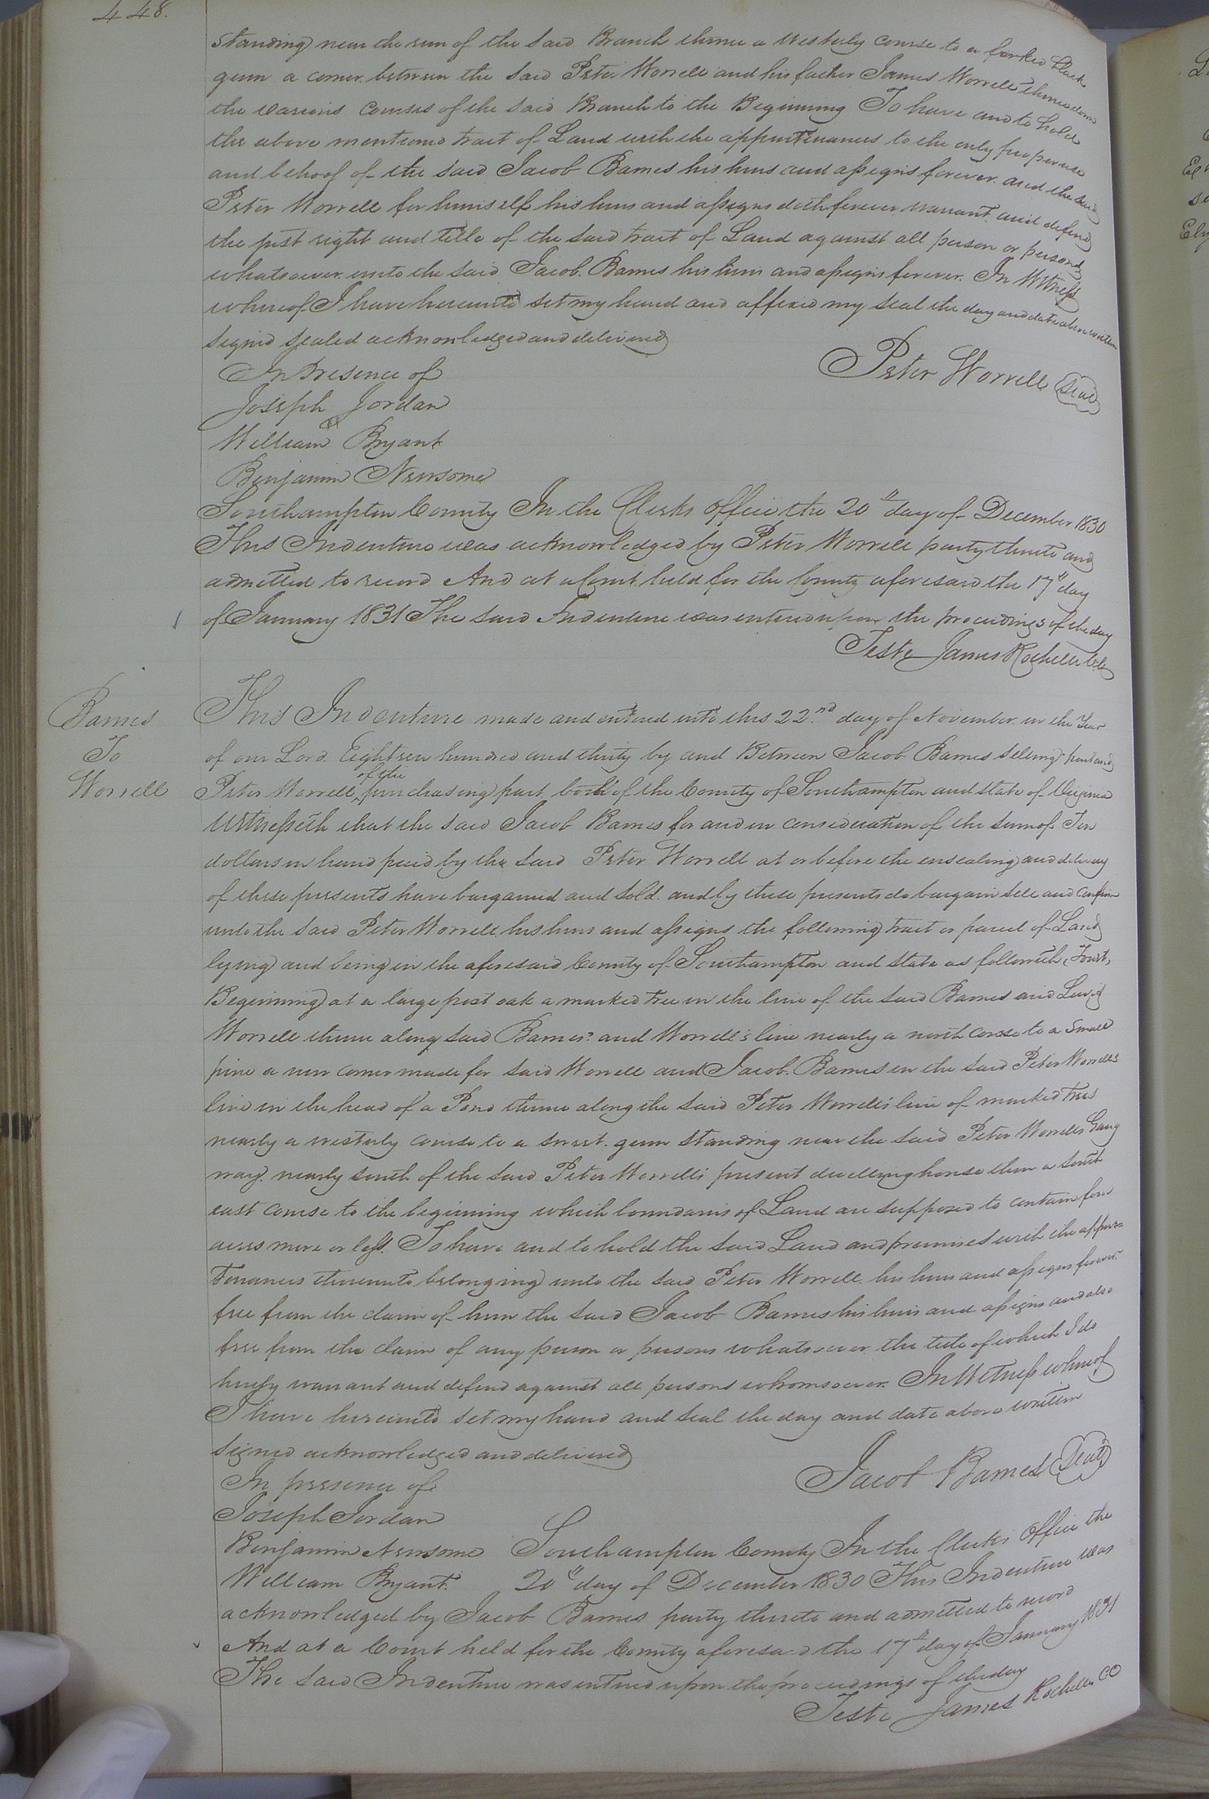 448.
standing near the run of the said Branch thence a westerly course to a forked black
gum a corner between the said Peter Worrell and his father James Worrell thence down
the various courses of the said Branch to the Beginning To have and to hold
the above mentiond tract of Land with the appurtenances to the only proper use
and behoof of the said Jacob Barnes his heirs and assigns forever and the said
Peter Worrell for himself his heirs and assigns doth forever warrant and defend
the just right and title of the said tract of Land against all person or persons
whatsoever unto the said Jacob Barnes his heirs and assigns forever. In Witness
whereof I have hereunto set my hand and affixed my seal the day and date above written
signed sealed acknowledged and delivered
In Presence of
Peter Worrell Seal
Joseph Jordan
William Bryant
Benjamin Newsome
Southampton County In the Clerks office the 20th day of December 1830
This Indenture was acknowledged by Peter Worrell party thereto and
admitted to record And at a Court held for the County aforesaid the 17th day
of January 1831 The said Indenture was entered upon the proceedings of the day
Teste James Rochelle Clk
Barnes
To
Worrell
This Indenture made and entered into this 22nd day of November in the Year
of our Lord Eighteen hundred and thirty by and Between Jacob Barnes selling part and
Peter Worrell of the purchasing part both of the County of Southampton and state of Virginia
Witnesseth that the said Jacob Barnes for and in consideration of the sum of Ten
dollars in hand paid by the said Peter Worrell at or before the ensealing and delivery
of these presents have bargained and sold and by these presents do bargain sell and confirm
unto the said Peter Worrell his heirs and assigns the following tract or parcel of Land
lying and being in the aforesaid County of Southampton and state as followeth,
Beginning at a large post oak a marked tree in the line of the said Barnes and
Worrell thence along said Barnes and Worrell's line nearly a north corse to a small
pine a new corner made for said Worrell and Jacob Barnes in the said Peter Worrells
line in the head of a Pond thence along the said Peter Worrell's line of marked trees
nearly a westerly course to a sweet gum standing near the said Peter Worrells Gang
way nearly south of the said Peter Worrells present dwelling house then a south
east course to the beginning which boundaries of Land are supposed to contain four
acres more or less. To have and to hold the said Land and premises with the appur
tenances thereunto belonging unto the said Peter Worrell his heirs and assigns forever
free from the claim of him the said Jacob Barnes his heirs and assigns and also
free from the claim of any person or persons whatsoever the title of which I do
hereby warrant and defend against all persons whomsoever. In Witness whereof
I have hereunto set my hand and seal the day and date above written
signed acknowledged and delivered
In presence of
Jacob Barnes Seal
Joseph Jordan
Benjamin Newsome
William Bryant
Southampton County In the Clerks Office the
20th day of December 1830 This Indenture was
acknowledged by Jacob Barnes party thereto and admitted to record
And at a Court held for the County aforesaid the 17th day of January 1831
The said Indenture was entered upon the proceedings of the day
Teste James Rochelle CC